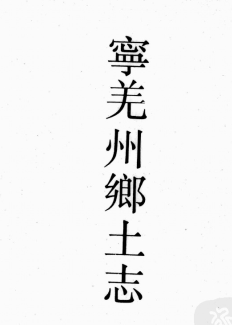 寧羌州鄉土志